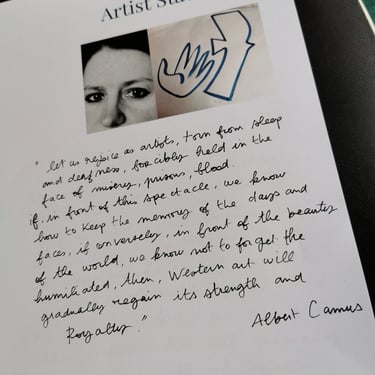 Artist Sta
" let us rejoice as artists, torn from sleep
and deafness, forcibly held in the
face of misery, prisons, blood.
if, in front of this spectacle, we know
how to keep the memory of the days and
faces, if conversely, in front of the beauty
of the world, we know not to forget the
humiliated, then, Western art will
gradually regain its strength and
Royalty."
Albert Camus